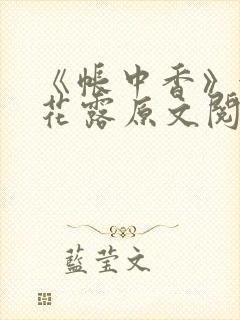 《帐中香》
花露原文阅
蓝莹文